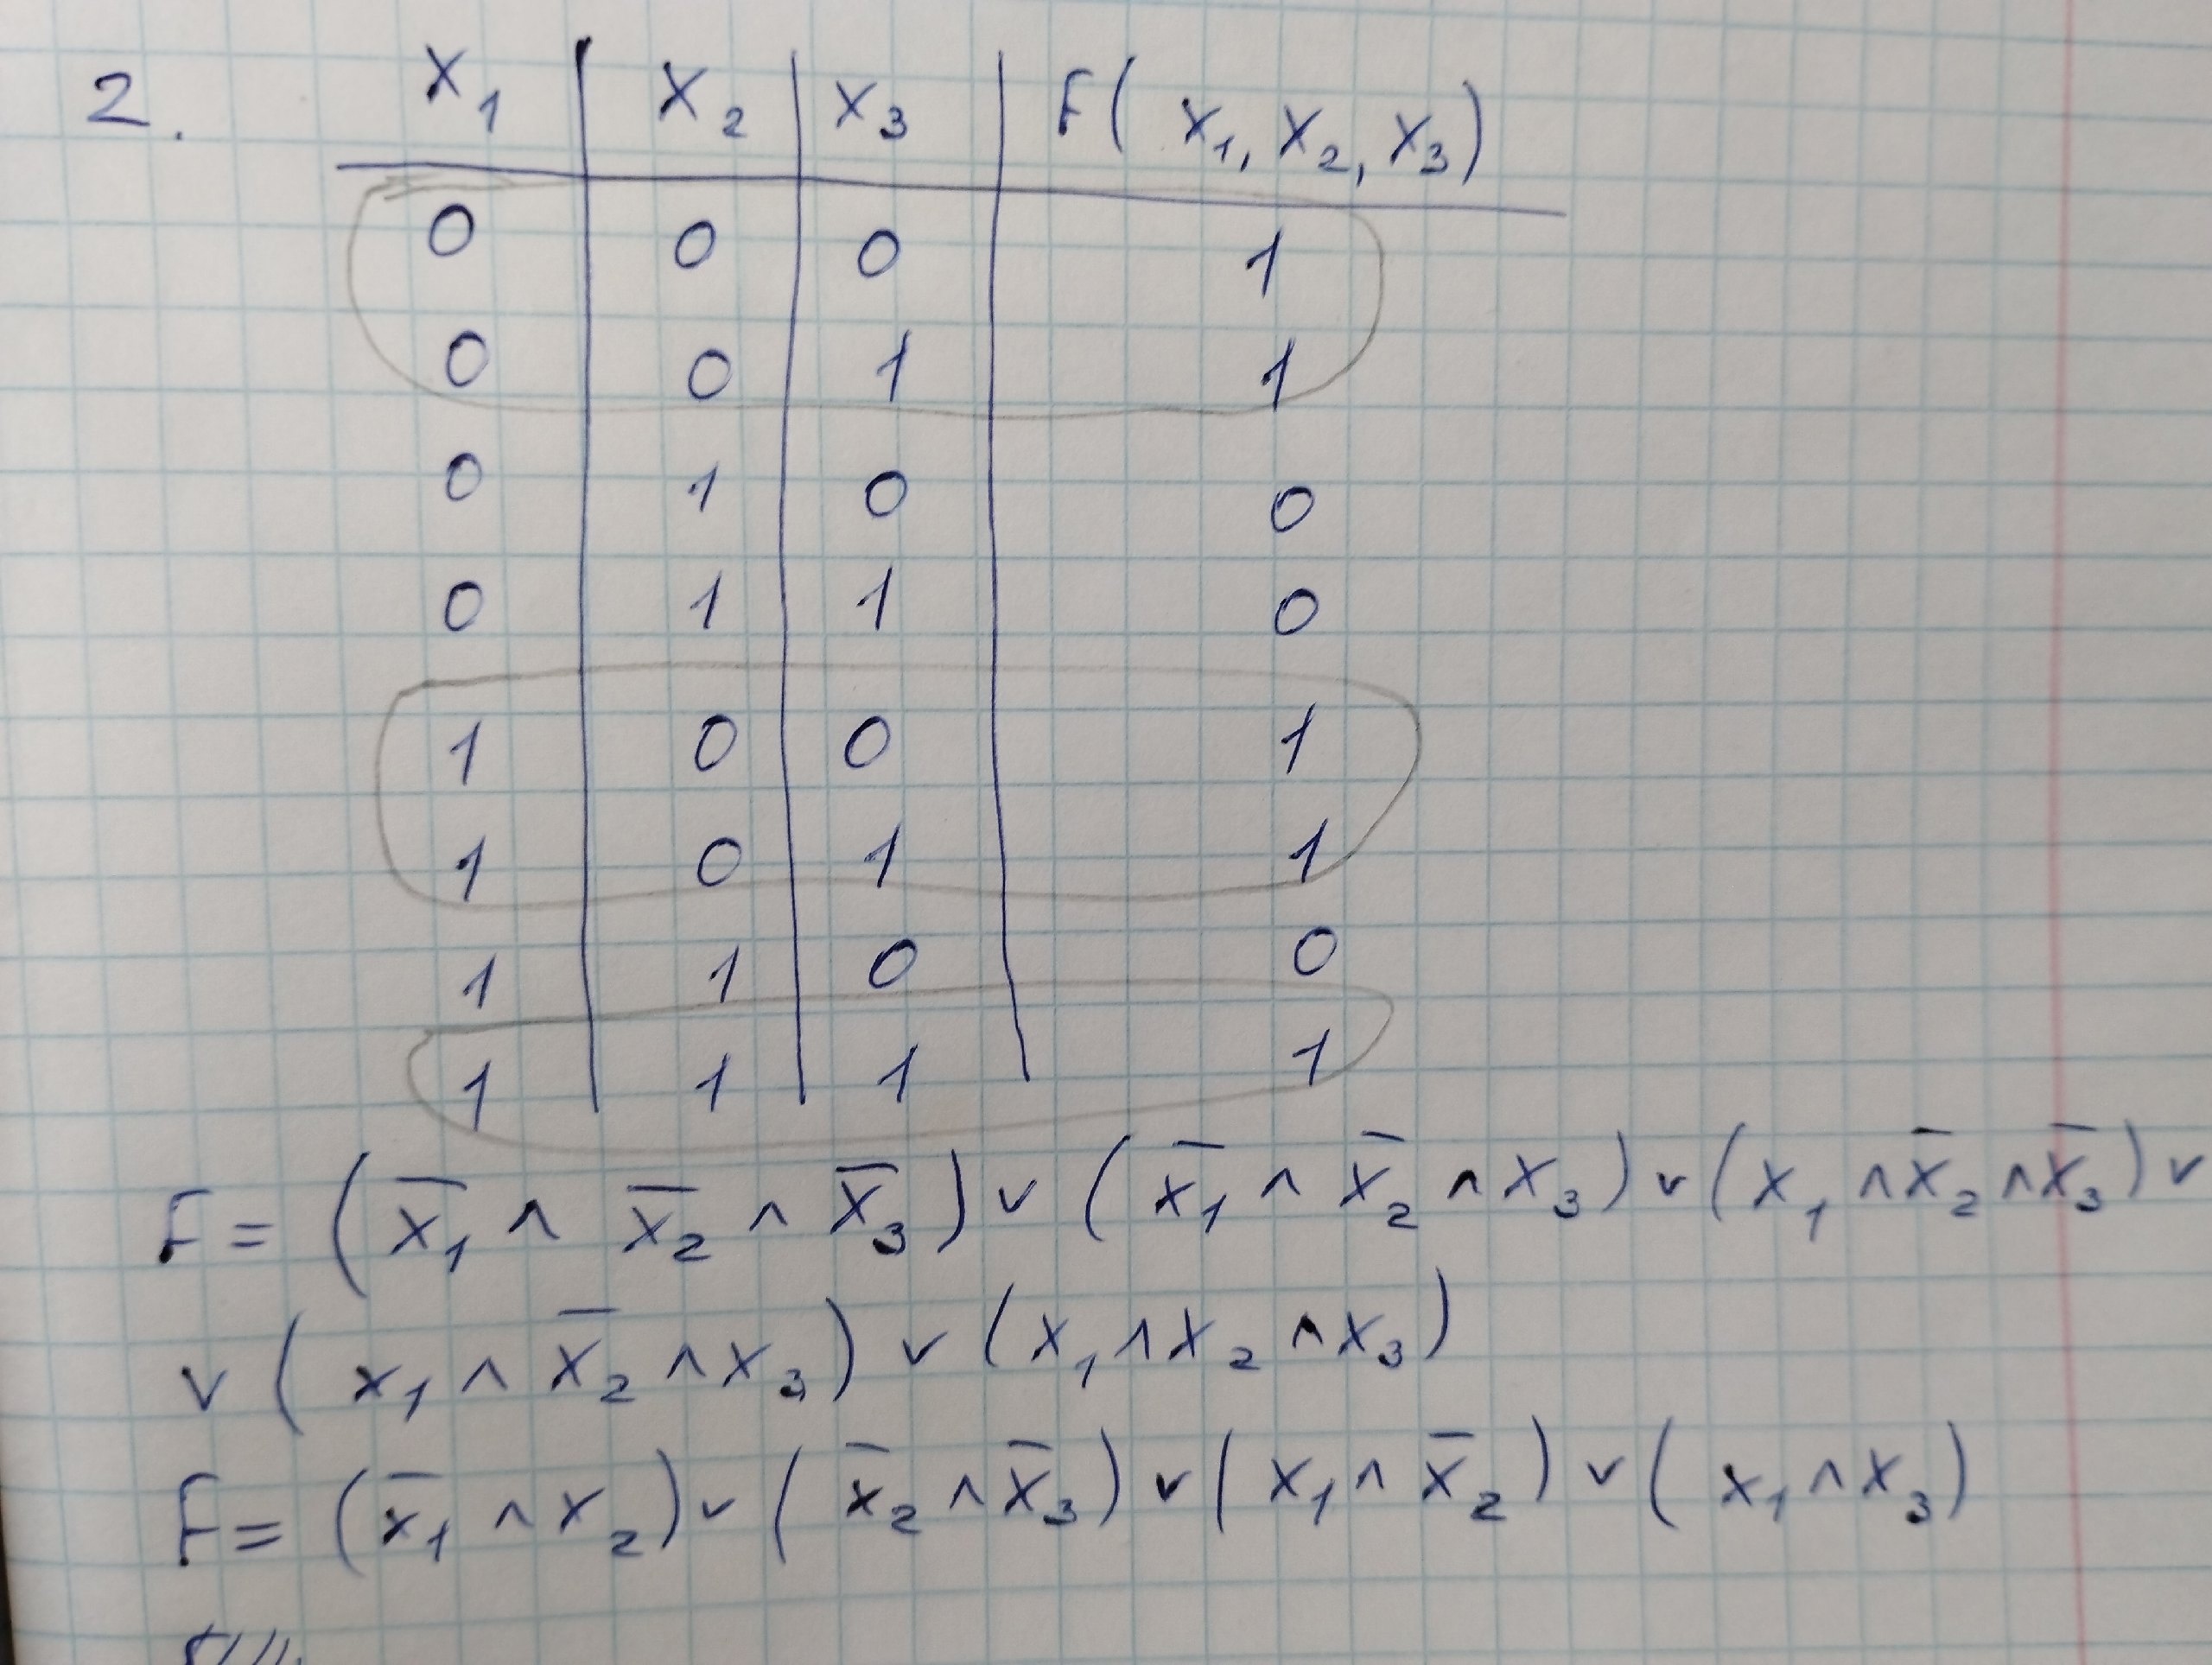 2. x₁ x₂ x₃ F(x₁, x₂, x₃)
0 0 0 1
0 0 1 1
0 1 0 0
0 1 1 0
1 0 0 1
1 0 1 1
1 1 0 0
1 1 1 1
F = (x̅₁ ∧ x̅₂ ∧ x̅₃) ∨ (x̅₁ ∧ x̅₂ ∧ x₃) ∨ (x₁ ∧ x̅₂ ∧ x̅₃) ∨
∨ (x₁ ∧ x̅₂ ∧ x₃) ∨ (x₁ ∧ x₂ ∧ x₃)
F = (x̅₁ ∧ x₂) ∨ (x̅₂ ∧ x̅₃) ∨ (x₁ ∧ x̅₂) ∨ (x₁ ∧ x₃)